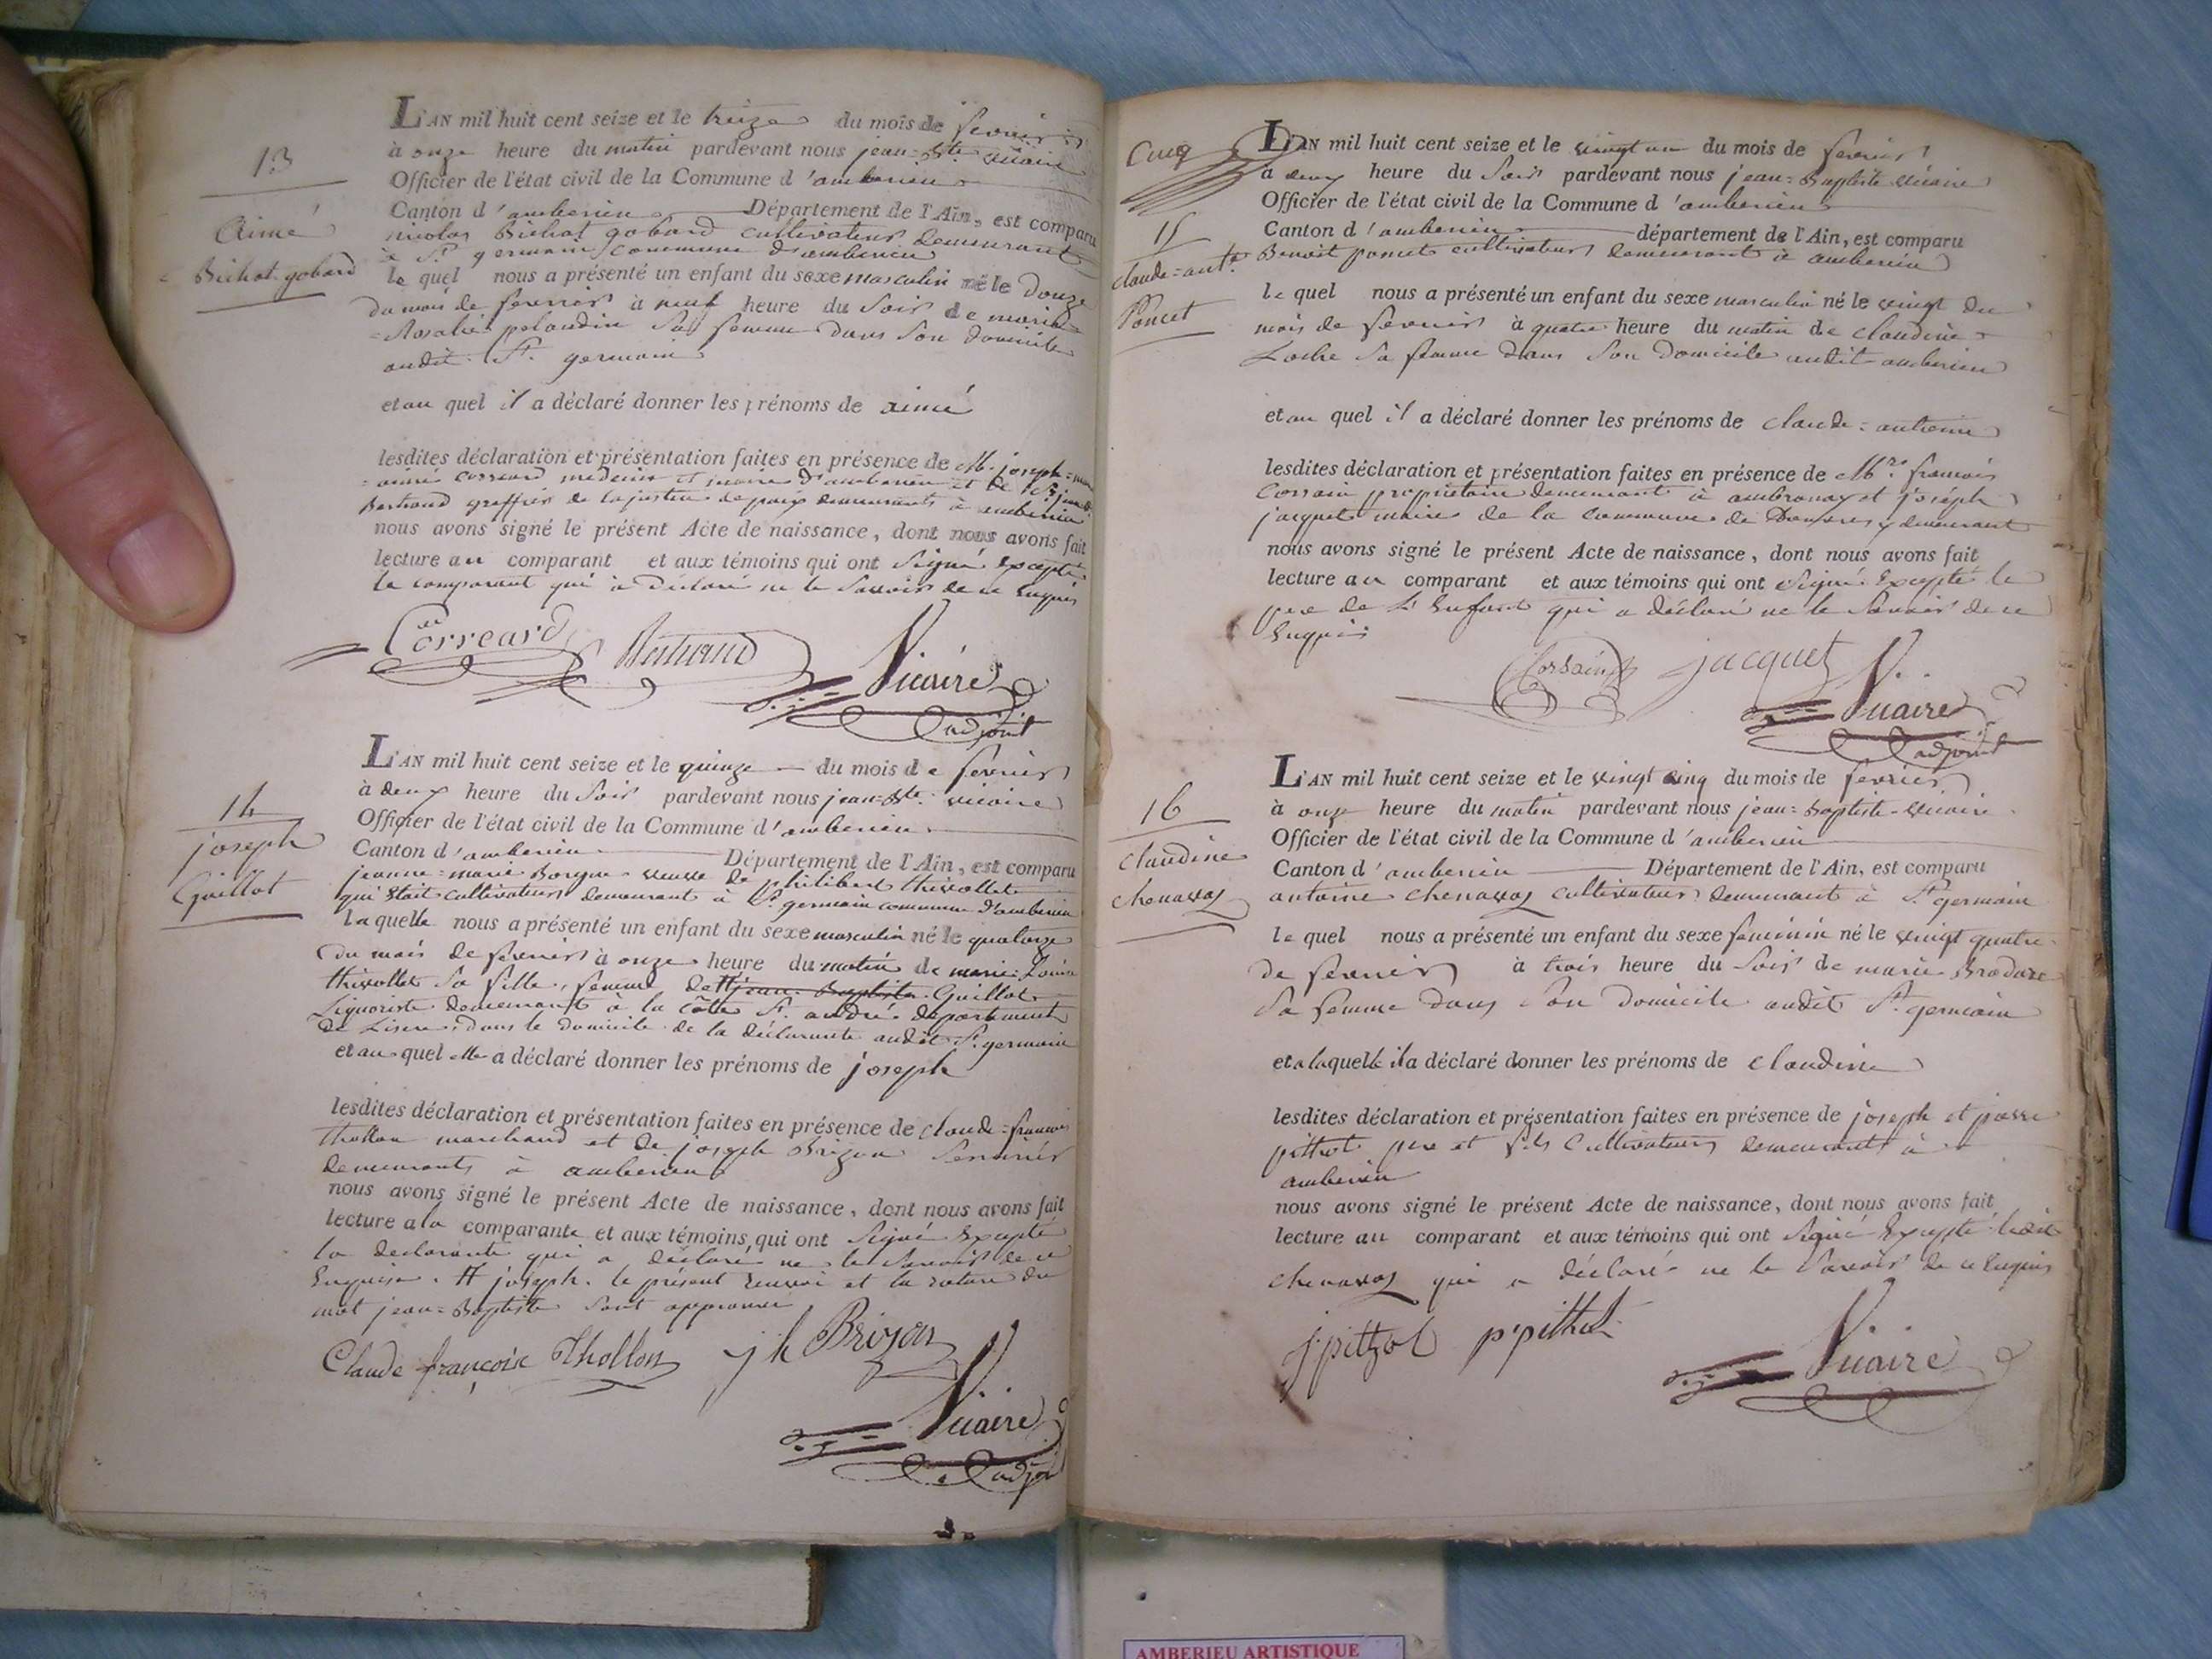 13
Aimé
Bichat gobard
L'AN mil huit cent seize et le treize du mois de fevrier
à onze heure du matin pardevant nous jean=Bte. vicaire
Officier de l'état civil de la Commune d'amberieu
Canton d'amberieu Département de l'Ain, est comparu
nicolas Bichat gobard cultivateur demeurant
à St. germain commune d'amberieu
le quel nous a présenté un enfant du sexe masculin né le Douze
du mois de fevrier à neuf heure du Soir de marie
=Rosalie pelaudin Sa femme dans Son domicile
audit St. germain
et au quel il a déclaré donner les prénoms de aimé
lesdites déclaration et présentation faites en présence de Mr. joseph=
=aimé correard medecin et maire d'amberieu et de
Bertrand greffier de la justice de paix demeurants à amberieu
nous avons signé le présent Acte de naissance, dont nous avons fait
lecture au comparant et aux témoins qui ont Signé Excepté
le comparant qui à déclaré ne le Savoir de ce Enquis
Correard Bertrand Vicaire
adjoint
14
joseph
Guillot
L'AN mil huit cent seize et le quinze du mois de fevrier
à deux heure du Soir pardevant nous jean=Bte. vicaire
Officier de l'état civil de la Commune d'amberieu
Canton d'amberieu Département de l'Ain, est comparu
jeanne=marie veuve de philibert thivollet
qui Etait cultivateur demeurant à St. germain commune d'amberieu
la quelle nous a présenté un enfant du sexe masculin né le quatorze
du mois de fevrier à onze heure du matin de marie=Louise
thivollet Sa fille, femme de # jean=Baptiste Guillot
Liquoriste demeurant à la Côte St. andré département
de Lisere, dans le domicile de la déclarante audit St. germain
et au quel elle a déclaré donner les prénoms de joseph
lesdites déclaration et présentation faites en présence de claude=francois
thollon marchand et de joseph Brizon Serrurier
demeurants à amberieu
nous avons signé le présent Acte de naissance, dont nous avons fait
lecture a la comparante et aux témoins qui ont Signé Excepté
la declarante qui a déclaré ne le Savoir de ce
Enquise. # joseph. le présent renvoi et la rature du
mot jean=Baptiste Sont approuvé
Claude françois Thollon jh Brizon
Vicaire
adjoint
Cinq
15
claude=ante.
Poncet
L'AN mil huit cent seize et le vingt un du mois de fevrier
à deux heure du Soir pardevant nous jean=Baptiste vicaire
Officier de l'état civil de la Commune d'amberieu
Canton d'amberieu département de l'Ain, est comparu
Benoit poncet cultivateur demeurant à amberieu
le quel nous a présenté un enfant du sexe masculin né le vingt du
mois de fevrier à quatre heure du matin de claudine
Loche Sa femme dans Son domicile audit amberieu
et au quel il a déclaré donner les prénoms de claude=antoine
lesdites déclaration et présentation faites en présence de Mre. francois
Corsain propriétaire demeurant à ambronay et joseph
jacquet maire de la commune de Douvres y demeurant
nous avons signé le présent Acte de naissance, dont nous avons fait
lecture au comparant et aux témoins qui ont Signé Excepté le
pere de L'Enfant qui a déclaré ne le Savoir de ce
Enquis
Corsain jacquet Vicaire
adjoint
16
claudine
chenavaz
L'AN mil huit cent seize et le vingt cinq du mois de fevrier
à onze heure du matin pardevant nous jean=Baptiste-vicaire
Officier de l'état civil de la Commune d'amberieu
Canton d'amberieu Département de l'Ain, est comparu
antoine chenavaz cultivateur demeurant à St. germain
le quel nous a présenté un enfant du sexe feminin né le vingt quatre
de fevrier à trois heure du Soir de marie
Sa femme dans Son domicile audit St. germain
et a laquelle il a déclaré donner les prénoms de claudine
lesdites déclaration et présentation faites en présence de joseph et pierre
pithot pere et fils Cultivateurs demeurants à
amberieu
nous avons signé le présent Acte de naissance, dont nous avons fait
lecture au comparant et aux témoins qui ont Signé Excepté ledit
chenavaz qui a déclaré ne le Savoir de ce Enquis
p.pithot
Vicaire
AMBERIEU ARTISTIQUE